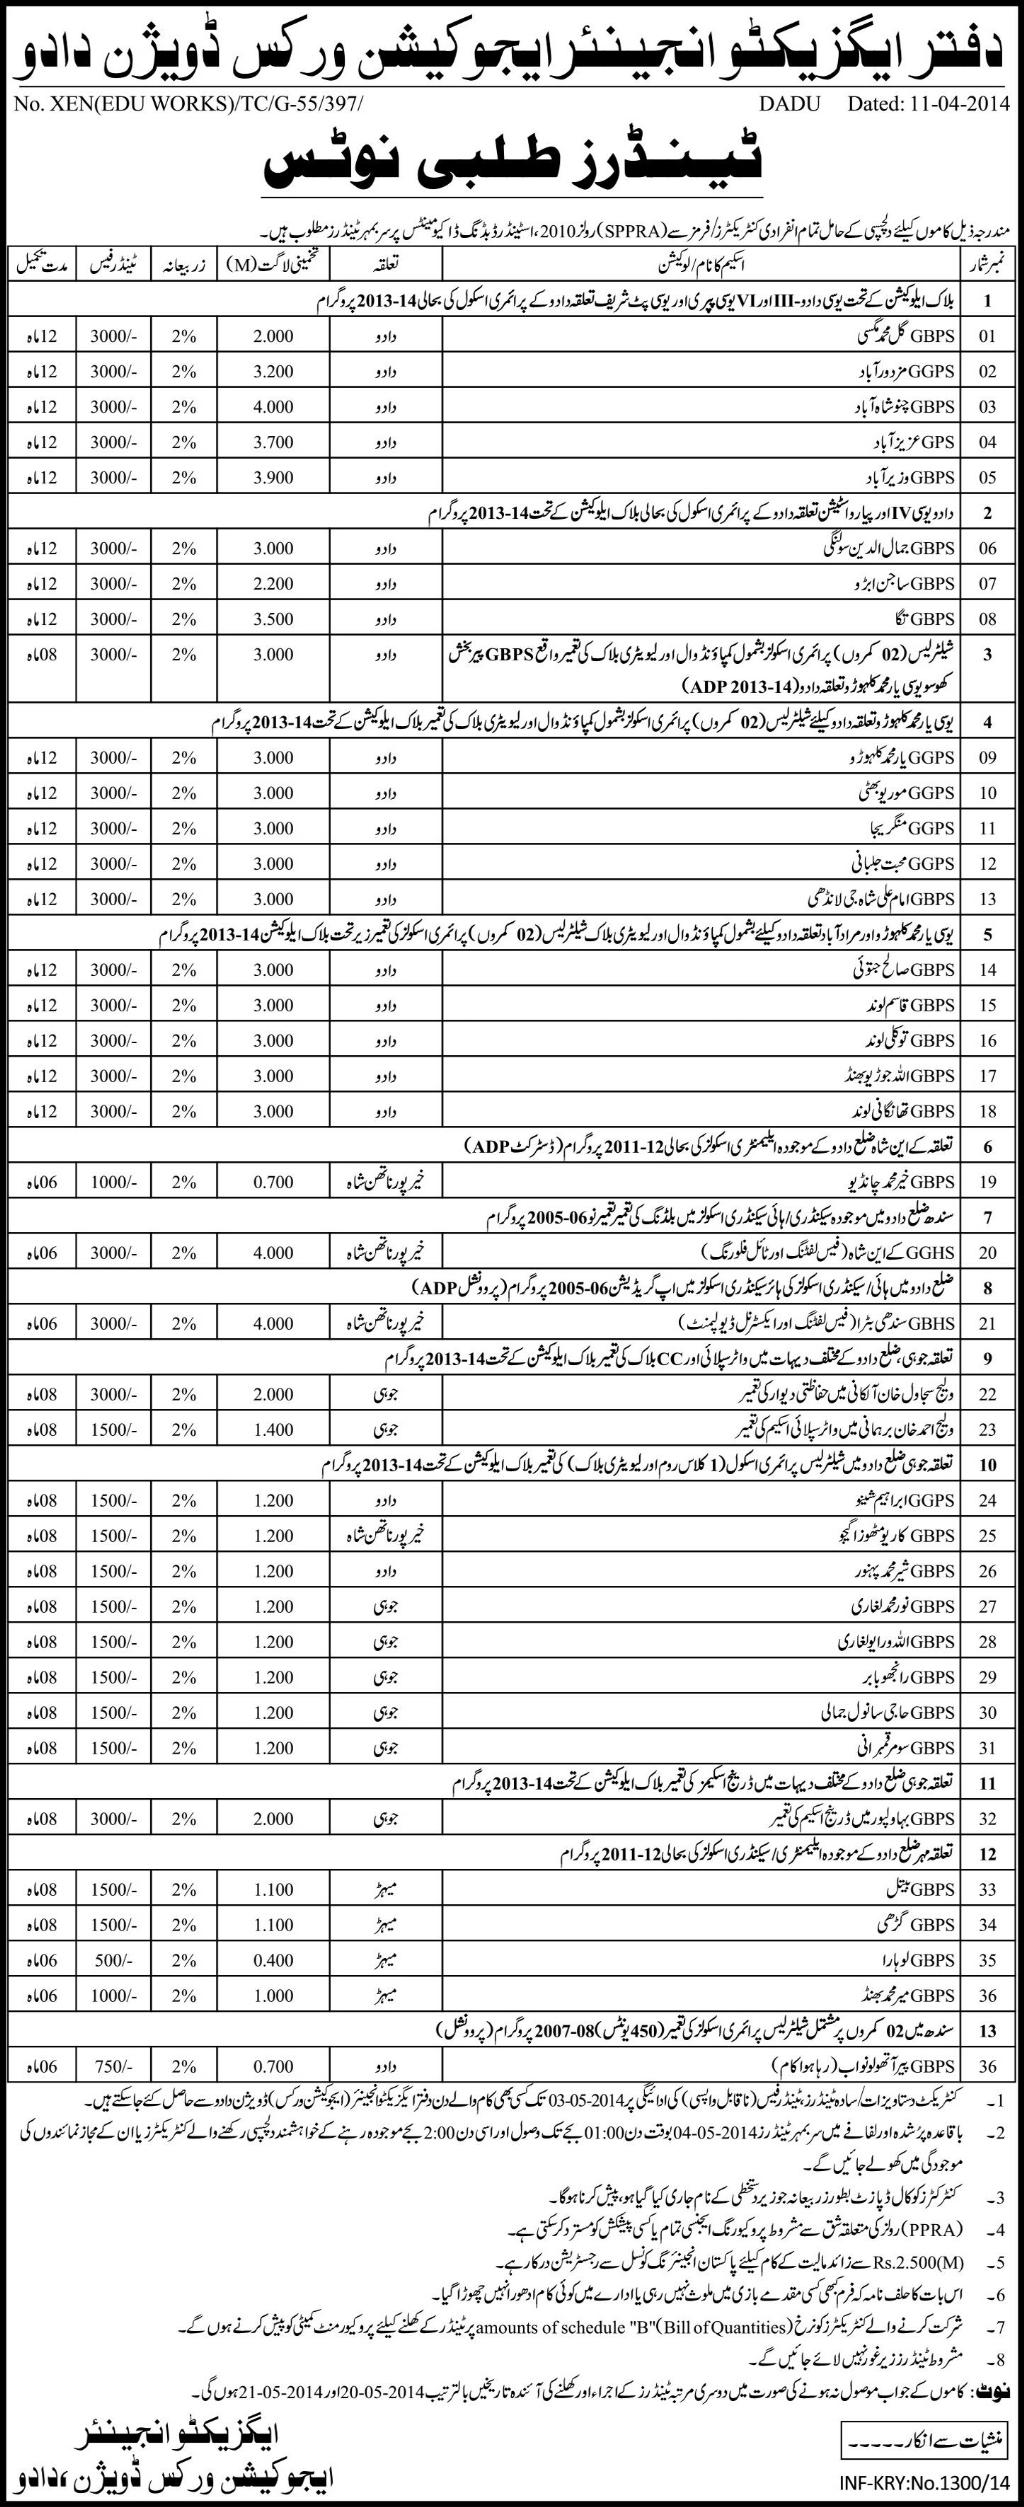 دفتر ایگزیکٹو انجینئر ایجوکیشن ورکس ڈویژن دادو
No. XEN(EDU WORKS)/TC/G-55/397/ DADU Dated: 11-04-2014
ٹینڈرز طلبی نوٹس
مندرجہ ذیل کاموں کیلئے دلچسپی کے حامل تمام انفرادی کنٹریکٹرز/فرمز سے (SPPRA) رولز 2010، اسٹینڈرڈ بڈنگ ڈاکیومینٹس پر سربمہر ٹینڈرز مطلوب ہیں۔
نمبر شمار اسکیم کا نام/لوکیشن تعلقہ تخمینی لاگت (M) زر بیعانہ ٹینڈر فیس مدت تکمیل
1 بلاک ایلوکیشن کے تحت یوسی دادو-III اور VI یوسی پیری اور یوسی پٹ شریف تعلقہ دادو کے پرائمری اسکول کی بحالی 14-2013 پروگرام
01 GBPS گل محمد مگسی دادو 2.000 2% 3000/- 12ماہ
02 GGPS مزدور آباد دادو 3.200 2% 3000/- 12ماہ
03 GBPS چنو شاہ آباد دادو 4.000 2% 3000/- 12ماہ
04 GPS عزیز آباد دادو 3.700 2% 3000/- 12ماہ
05 GBPS وزیر آباد دادو 3.900 2% 3000/- 12ماہ
2 دادو یوسی IV اور پیارو اسٹیشن تعلقہ دادو کے پرائمری اسکول کی بحالی بلاک ایلوکیشن کے تحت 14-2013 پروگرام
06 GBPS جمال الدین سولنگی دادو 3.000 2% 3000/- 12ماہ
07 GBPS ساجن ابڑو دادو 2.200 2% 3000/- 12ماہ
08 GBPS تگا دادو 3.500 2% 3000/- 12ماہ
3 شیلٹرلیس (02 کمروں) پرائمری اسکولز بشمول کمپاؤنڈ وال اور لیویٹری بلاک کی تعمیر واقع GBPS پیر بخش دادو 3.000 2% 3000/- 08ماہ
کھوسو یوسی یار محمد کلہوڑو تعلقہ دادو (ADP 2013-14)
4 یوسی یار محمد کلہوڑو تعلقہ دادو کیلئے شیلٹرلیس (02 کمروں) پرائمری اسکولز بشمول کمپاؤنڈ وال اور لیویٹری بلاک کی تعمیر بلاک ایلوکیشن کے تحت 14-2013 پروگرام
09 GGPS یار محمد کلہوڑو دادو 3.000 2% 3000/- 12ماہ
10 GGPS موریو بھٹی دادو 3.000 2% 3000/- 12ماہ
11 GGPS منگریجا دادو 3.000 2% 3000/- 12ماہ
12 GGPS محبت جلبانی دادو 3.000 2% 3000/- 12ماہ
13 GBPS امام علی شاہ جی لانڈھی دادو 3.000 2% 3000/- 12ماہ
5 یوسی یار محمد کلہوڑو اور مراد آباد تعلقہ دادو کیلئے بشمول کمپاؤنڈ وال اور لیویٹری بلاک شیلٹرلیس (02 کمروں) پرائمری اسکولز کی تعمیر زیر تحت بلاک ایلوکیشن 14-2013 پروگرام
14 GBPS صالح جتوئی دادو 3.000 2% 3000/- 12ماہ
15 GBPS قاسم لوند دادو 3.000 2% 3000/- 12ماہ
16 GBPS توکلی لوند دادو 3.000 2% 3000/- 12ماہ
17 GBPS اللہ جوڑیو بھنڈ دادو 3.000 2% 3000/- 12ماہ
18 GBPS تھانگانی لوند دادو 3.000 2% 3000/- 12ماہ
6 تعلقہ کے این شاہ ضلع دادو کے موجودہ ایلیمنٹری اسکولز کی بحالی 12-2011 پروگرام (ڈسٹرکٹ ADP)
19 GBPS خیر محمد چانڈیو خیر پور ناتھن شاہ 0.700 2% 1000/- 06ماہ
7 سندھ ضلع دادو میں موجودہ سیکنڈری/ہائی سیکنڈری اسکولز میں بلڈنگ کی تعمیر تعمیر نو 06-2005 پروگرام
20 GGHS کے این شاہ (فیس لفٹنگ اور ٹائل فلورنگ) خیر پور ناتھن شاہ 4.000 2% 3000/- 06ماہ
8 ضلع دادو میں ہائی/سیکنڈری اسکولز کی ہائر سیکنڈری اسکولز میں اپ گریڈیشن 06-2005 پروگرام (پروونشل ADP)
21 GBHS سندھی بٹرا (فیس لفٹنگ اور ایکسٹرنل ڈیولپمنٹ) خیر پور ناتھن شاہ 4.000 2% 3000/- 06ماہ
9 تعلقہ جوہی، ضلع دادو کے مختلف دیہات میں واٹر سپلائی اور CC بلاک کی تعمیر بلاک ایلوکیشن کے تحت 14-2013 پروگرام
22 ولیج سجاول خان آلکانی میں حفاظتی دیوار کی تعمیر جوہی 2.000 2% 3000/- 08ماہ
23 ولیج احمد خان برہمانی میں واٹر سپلائی اسکیم کی تعمیر جوہی 1.400 2% 1500/- 08ماہ
10 تعلقہ جوہی ضلع دادو میں شیلٹرلیس پرائمری اسکول (1 کلاس روم اور لیویٹری بلاک) کی تعمیر بلاک ایلوکیشن کے تحت 14-2013 پروگرام
24 GGPS ابراہیم شینو دادو 1.200 2% 1500/- 08ماہ
25 GBPS کاریو مٹھوزاگیجو خیر پور ناتھن شاہ 1.200 2% 1500/- 08ماہ
26 GBPS شیر محمد پنہور دادو 1.200 2% 1500/- 08ماہ
27 GBPS نور محمد لغاری جوہی 1.200 2% 1500/- 08ماہ
28 GBPS اللہ ورایو لغاری جوہی 1.200 2% 1500/- 08ماہ
29 GBPS رانجھو بابر جوہی 1.200 2% 1500/- 08ماہ
30 GBPS حاجی سانول جمالی جوہی 1.200 2% 1500/- 08ماہ
31 GBPS سومر قمبرانی جوہی 1.200 2% 1500/- 08ماہ
11 تعلقہ جوہی ضلع دادو کے مختلف دیہات میں ڈرینج اسکیمز کی تعمیر بلاک ایلوکیشن کے تحت 14-2013 پروگرام
32 GBPS بہاولپور میں ڈرینج اسکیم کی تعمیر جوہی 2.000 2% 3000/- 08ماہ
12 تعلقہ میہڑ ضلع دادو کے موجودہ ایلیمنٹری/سیکنڈری اسکولز کی بحالی 12-2011 پروگرام
33 GBPS بیتل میہڑ 1.100 2% 1500/- 08ماہ
34 GBPS گڑھی میہڑ 1.100 2% 1500/- 08ماہ
35 GBPS لوہارا میہڑ 0.400 2% 500/- 06ماہ
36 GBPS میر محمد بھنڈ میہڑ 1.000 2% 1000/- 06ماہ
13 سندھ میں 02 کمروں پر مشتمل شیلٹرلیس پرائمری اسکولز کی تعمیر (450 یونٹس) 08-2007 پروگرام (پروونشل)
36 GBPS پیر آتھو لونواب (رہا ہوا کام) دادو 0.700 2% 750/- 06ماہ
1۔ کنٹریکٹ دستاویزات/سادہ ٹینڈرز، ٹینڈر فیس (ناقابل واپسی) کی ادائیگی پر 03-05-2014 تک کسی بھی کام والے دن دفتر ایگزیکٹو انجینئر (ایجوکیشن ورکس) ڈویژن دادو سے حاصل کئے جاسکتے ہیں۔
2۔ باقاعدہ پُر شدہ اور لفافے میں سربمہر ٹینڈرز 04-05-2014 بوقت دن 01:00 بجے تک وصول اور اسی دن 2:00 بجے موجودہ رہنے کے خواہشمند دلچسپی رکھنے والے کنٹریکٹرز یا ان کے مجاز نمائندوں کی
موجودگی میں کھولے جائیں گے۔
3۔ کنٹرکٹرز کو کال ڈپازٹ بطور زر بیعانہ جو زیر دستخطی کے نام جاری کیا گیا ہو، پیش کرنا ہوگا۔
4۔ (PPRA) رولز کی متعلقہ شق سے مشروط پروکیورنگ ایجنسی تمام یا کسی پیشکش کو مسترد کر سکتی ہے۔
5۔ Rs.2.500(M) سے زائد مالیت کے کام کیلئے پاکستان انجینئرنگ کونسل سے رجسٹریشن درکار ہے۔
6۔ اس بات کا حلف نامہ کہ فرم کبھی کسی مقدمے بازی میں ملوث نہیں رہی یا ادارے میں کوئی کام ادھورا نہیں چھوڑا گیا۔
7۔ شرکت کرنے والے کنٹریکٹرز کو نرخ amounts of schedule "B"(Bill of Quantities) پر ٹینڈر کے کھلنے کیلئے پروکیورمنٹ کمیٹی کو پیش کرنے ہوں گے۔
8۔ مشروط ٹینڈرز زیر غور نہیں لائے جائیں گے۔
نوٹ: کاموں کے جواب موصول نہ ہونے کی صورت میں دوسری مرتبہ ٹینڈرز کے اجراء اور کھلنے کی آئندہ تاریخیں بالترتیب 20-05-2014 اور 21-05-2014 ہوں گی۔
ایگزیکٹو انجینئر
ایجوکیشن ورکس ڈویژن، دادو
منشیات سے انکار۔۔۔۔۔
INF-KRY:No.1300/14